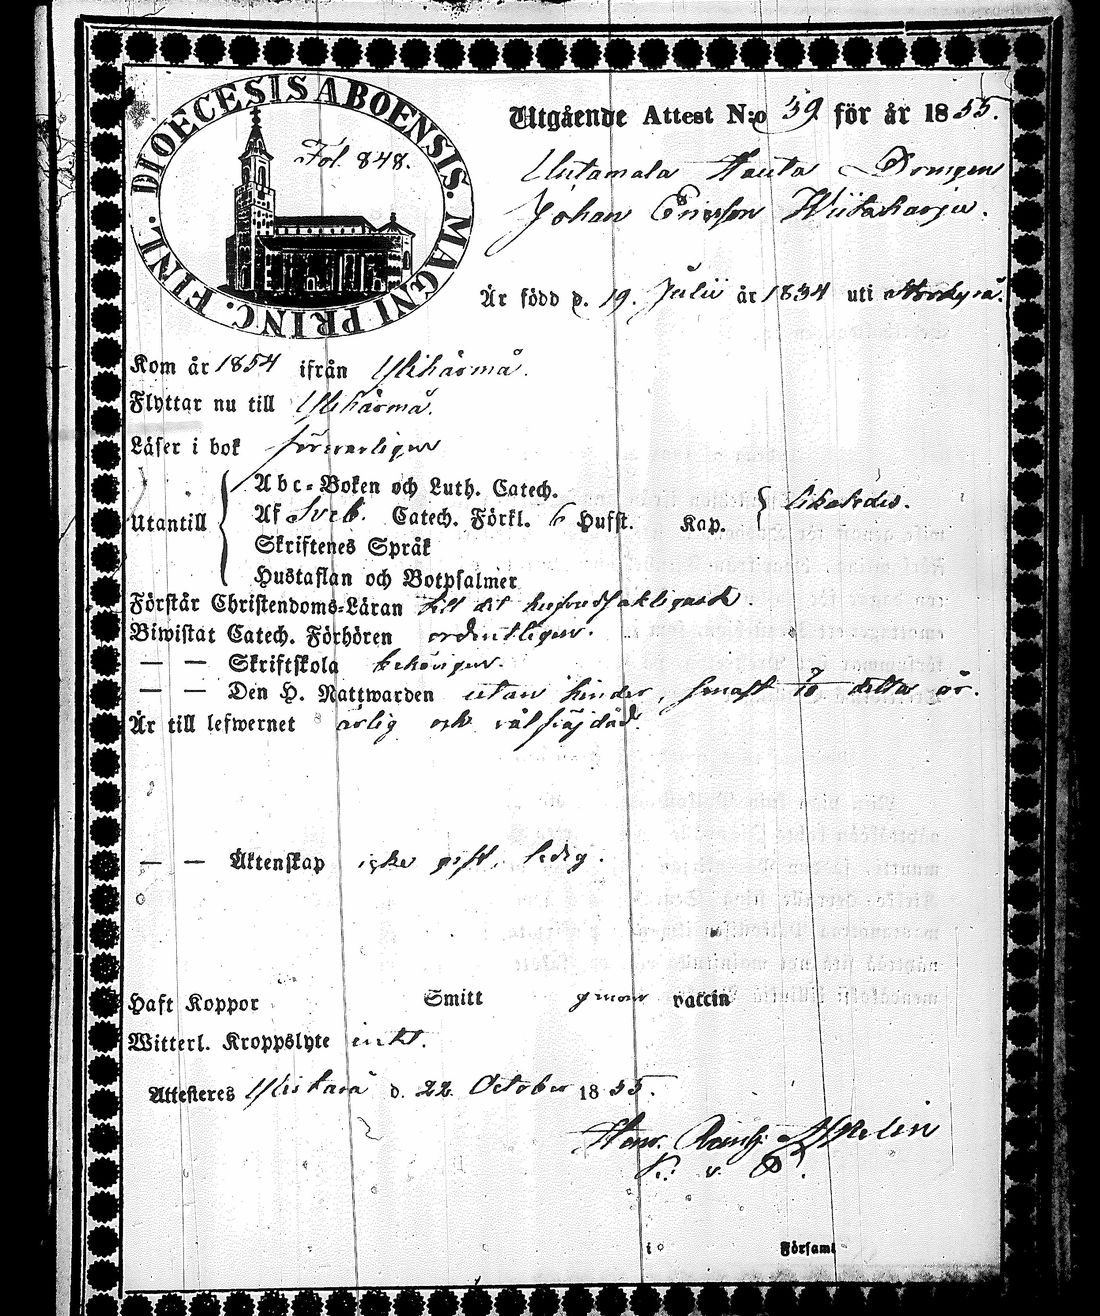 DIOECESIS ABOENSIS. MAGNI PRINC. FINL.
Fol. 848.
Utgående Attest N:o 39 för år 1855.
Drengen
Johan Ericsson Wiitaharju.
Är född d. 19. Julii år 1834 uti Storkyrå.
Kom år 1854 ifrån Ylihärmä.
Flyttar nu till Ylihärmä.
Läser i bok försvarligen
Utantill
Abc-Boken och Luth. Catech.
Af Sveb. Catech. Förkl. 6 Hufst. Kap. likaledes.
Skriftenes Språk
Hustaflan och Botpsalmer
Förstår Christendoms-Läran till det hufvudsakligaste.
Biwistat Catech. Förhören ordentligen.
— — Skriftskola behörigen.
— — Den H. Nattwarden utan hinder, senast 7/10 detta år.
Är till lefwernet ärlig och välfräjdad.
— — Äktenskap icke gift, ledig.
Haft Koppor Smitt genom vaccin
Witterl. Kroppslyte intet.
Attesteres Ylistaro d. 22. October 1855.
Aspelin
V. P.
i Församl